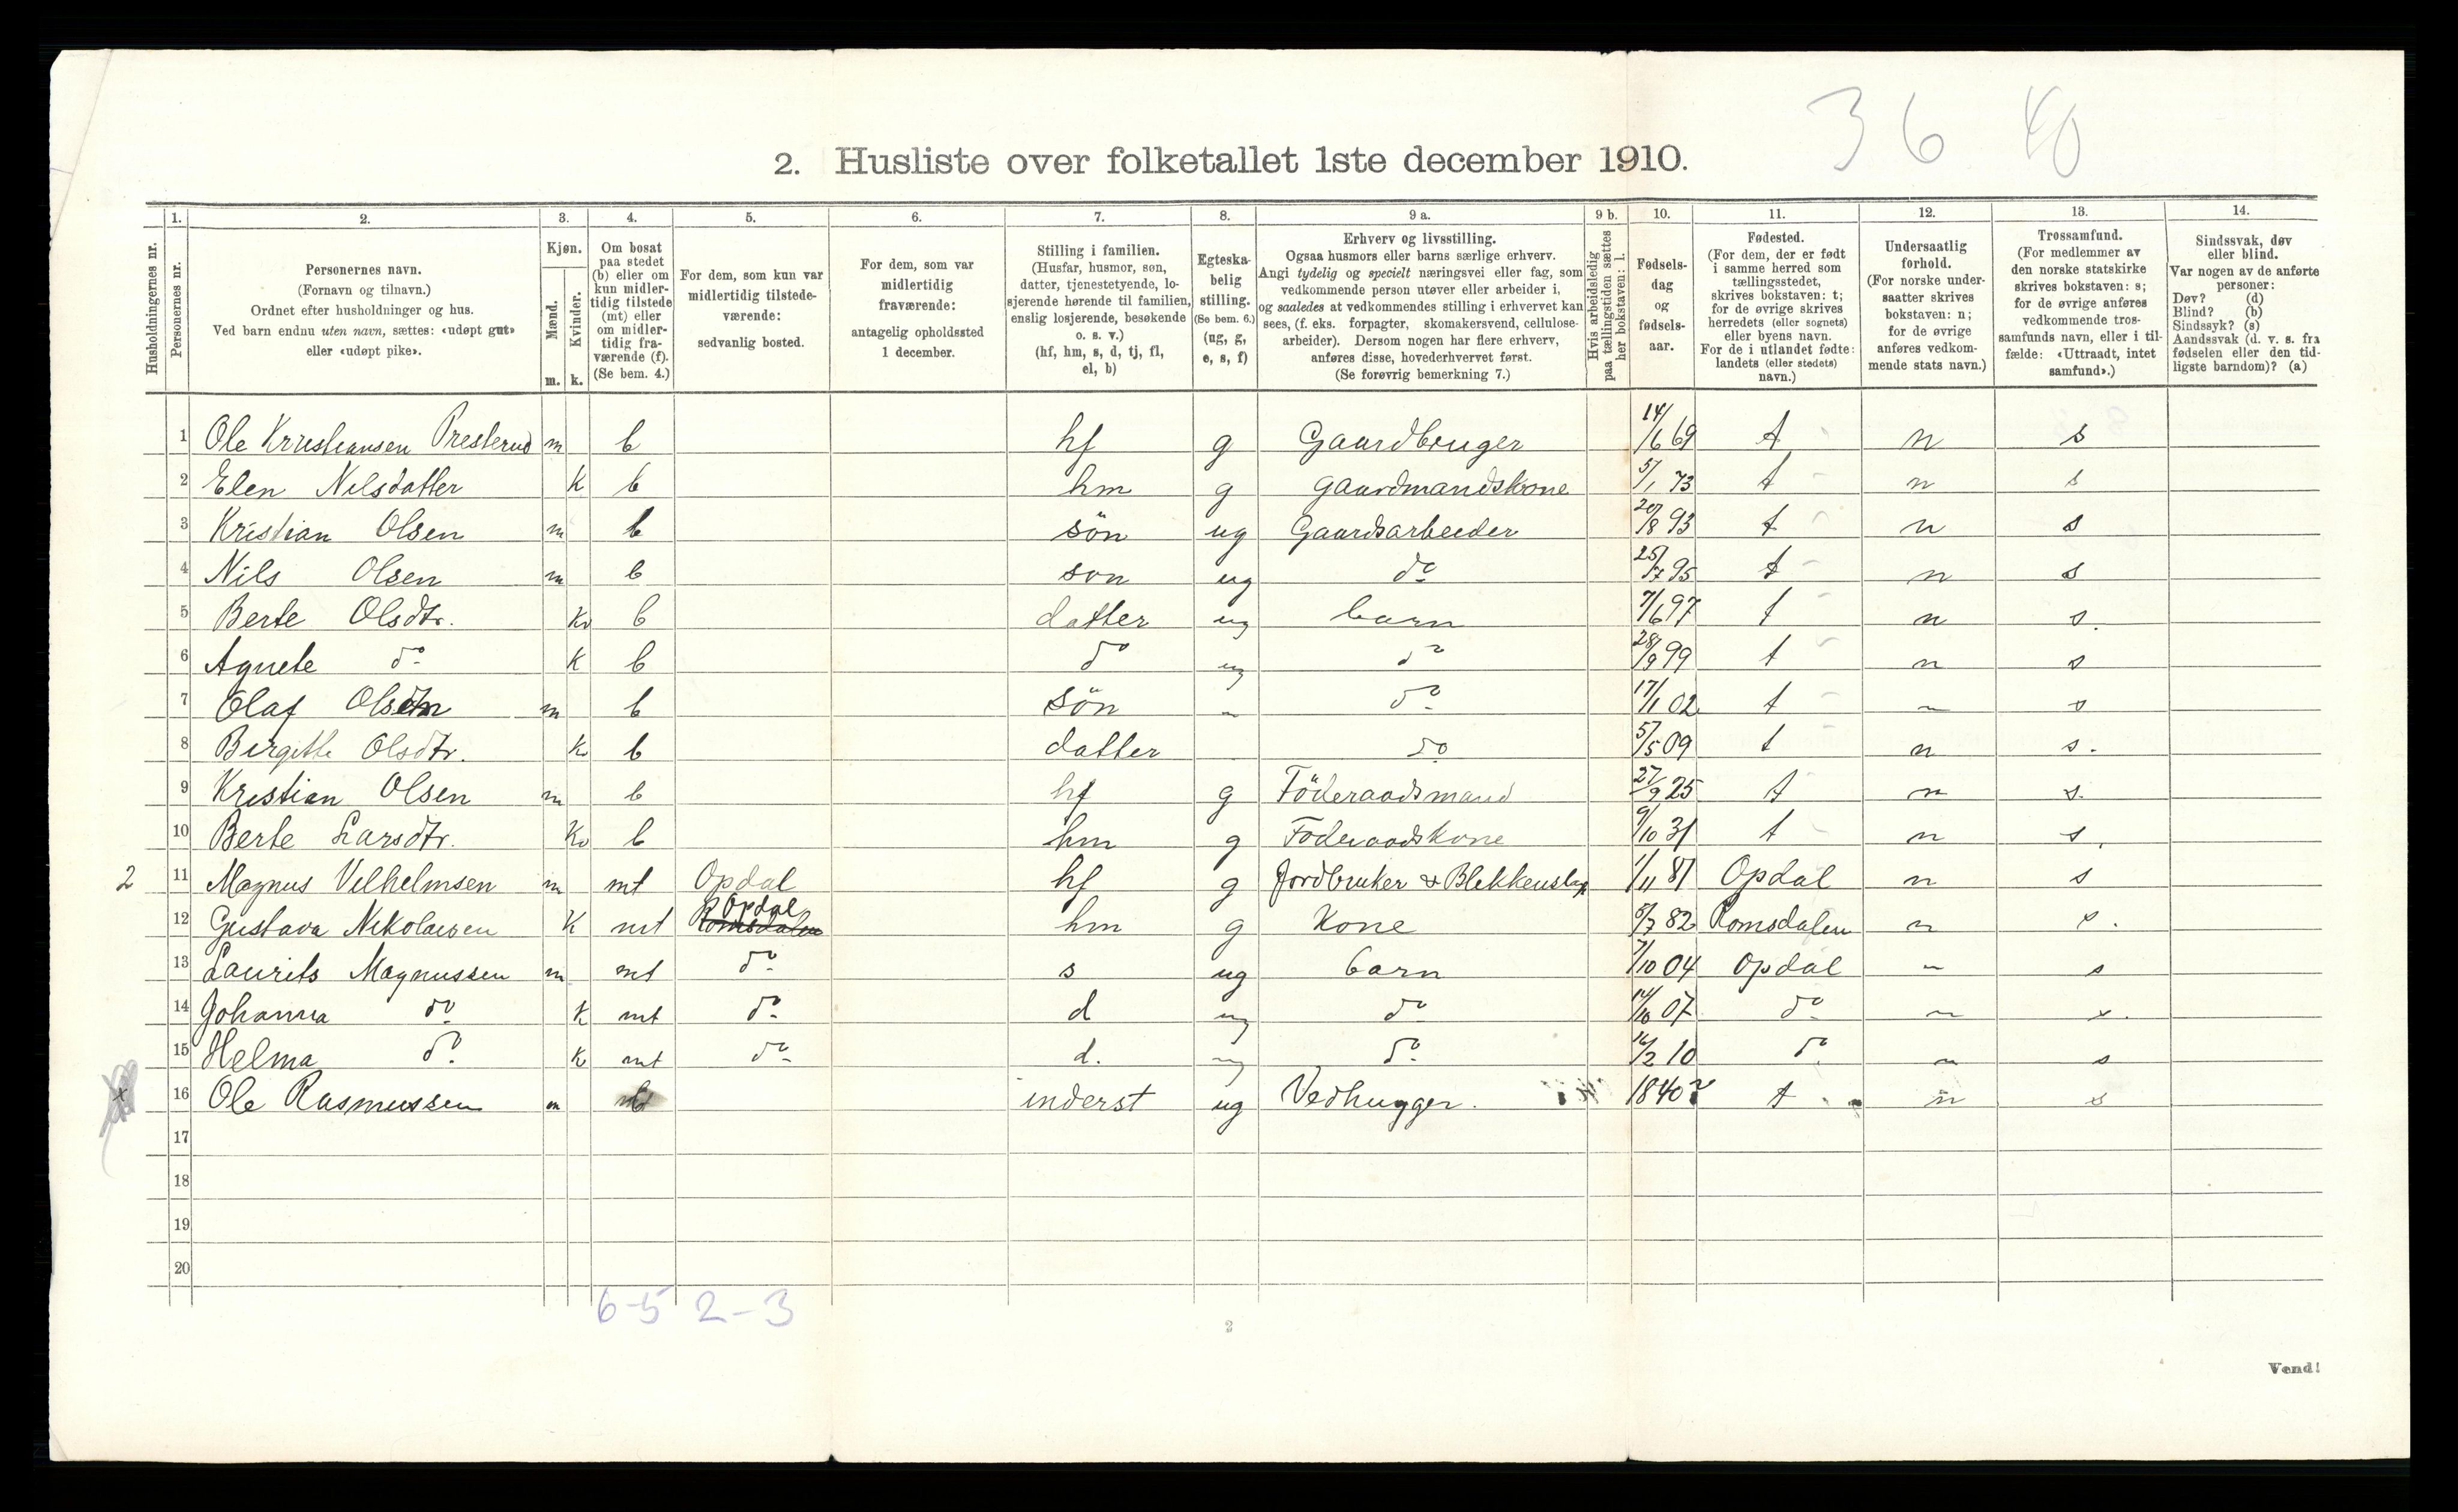 36 40
2. Husliste over folketallet 1ste december 1910.
Husholdningernes nr.
1. Personernes nr.
2. Personernes navn.
(Fornavn og tilnavn.)
Ordnet efter husholdninger og hus.
Ved barn endnu uten navn, sættes: «udøpt gut»
eller «udøpt pike».
3. Kjøn.
Mænd. m.
Kvinder. k.
4. Om bosat
paa stedet
(b) eller om
kun midler-
tidig tilstede
(mt) eller
om midler-
tidig fra-
værende (f).
(Se bem. 4.)
5. For dem, som kun var
midlertidig tilstede-
værende:
sedvanlig bosted.
6. For dem, som var
midlertidig
fraværende:
antagelig opholdssted
1 december.
7. Stilling i familien.
(Husfar, husmor, søn,
datter, tjenestetyende, lo-
sjerende hørende til familien,
enslig losjerende, besøkende
o. s. v.)
(hf, hm, s, d, tj, fl,
el, b)
8. Egteska-
belig
stilling.
(Se bem. 6.)
(ug, g,
e, s, f)
9 a. Erhverv og livsstilling.
Ogsaa husmors eller barns særlige erhverv.
Angi tydelig og specielt næringsvei eller fag, som
vedkommende person utøver eller arbeider i,
og saaledes at vedkommendes stilling i erhvervet kan
sees, (f. eks. forpagter, skomakersvend, cellulose-
arbeider). Dersom nogen har flere erhverv,
anføres disse, hovederhvervet først.
(Se forøvrig bemerkning 7.)
9 b. Hvis arbeidsledig
paa tællingstiden sættes
her bokstaven: l.
10. Fødsels-
dag
og
fødsels-
aar.
11. Fødested.
(For dem, der er født
i samme herred som
tællingsstedet,
skrives bokstaven: t;
for de øvrige skrives
herredets (eller sognets)
eller byens navn.
For de i utlandet fødte:
landets (eller stedets)
navn.)
12. Undersaatlig
forhold.
(For norske under-
saatter skrives
bokstaven: n;
for de øvrige
anføres vedkom-
mende stats navn.)
13. Trossamfund.
(For medlemmer av
den norske statskirke
skrives bokstaven: s;
for de øvrige anføres
vedkommende tros-
samfunds navn, eller i til-
fælde: «Uttraadt, intet
samfund».)
14. Sindssvak, døv
eller blind.
Var nogen av de anførte
personer:
Døv? (d)
Blind? (b)
Sindssyk? (s)
Aandssvak (d. v. s. fra
fødselen eller den tid-
ligste barndom)? (a)
1 Ole Kristiansen Presterud m b hf g Gaardbruger 14/6 69 t n s
2 Elen Nilsdatter K b hm g gaardmandskone 5/1 73 t n s
3 Kristian Olsen m b sön ug Gaardsarbeider 20/8 93 t n s
4 Nils Olsen m b son ug do 25/7 95 t n s
5 Berte Olsdtr. Kv b datter ug barn 7/6 97 t n s.
6 Agnete do K b do ug do 28/9 99 t n s
7 Olaf Olsen m b sön do 17/1 02 t n s
8 Birgitte Olsdtr. K b datter do 5/5 09 t n s.
9 Kristian Olsen m b hf g Föderaadsmand 27/9 25 t n s.
10 Berte Larsdtr. Kv b hm g Föderaadskone 9/10 31 t n s.
2 11 Magnus Vilhelmsen m mt Opdal hf g Jordbruker & Blekkenslag 1/11 81 Opdal n s
12 Gustava Nikolaisen K mt Romsdalen Opdal hm g Kone 5/7 82 Romsdalen n s.
13 Laurits Magnussen m mt do s ug barn 7/10 04 Opdal n s
14 Johanna do K mt do d ug do 14/10 07 do n s.
15 Helma do K mt do d. ug do 16/2 10 do n s
x 16 Ole Rasmussen m b inderst ug Vedhugger. 1840? t n s
17
18
19
20
6-5 2-3
2
Vend!